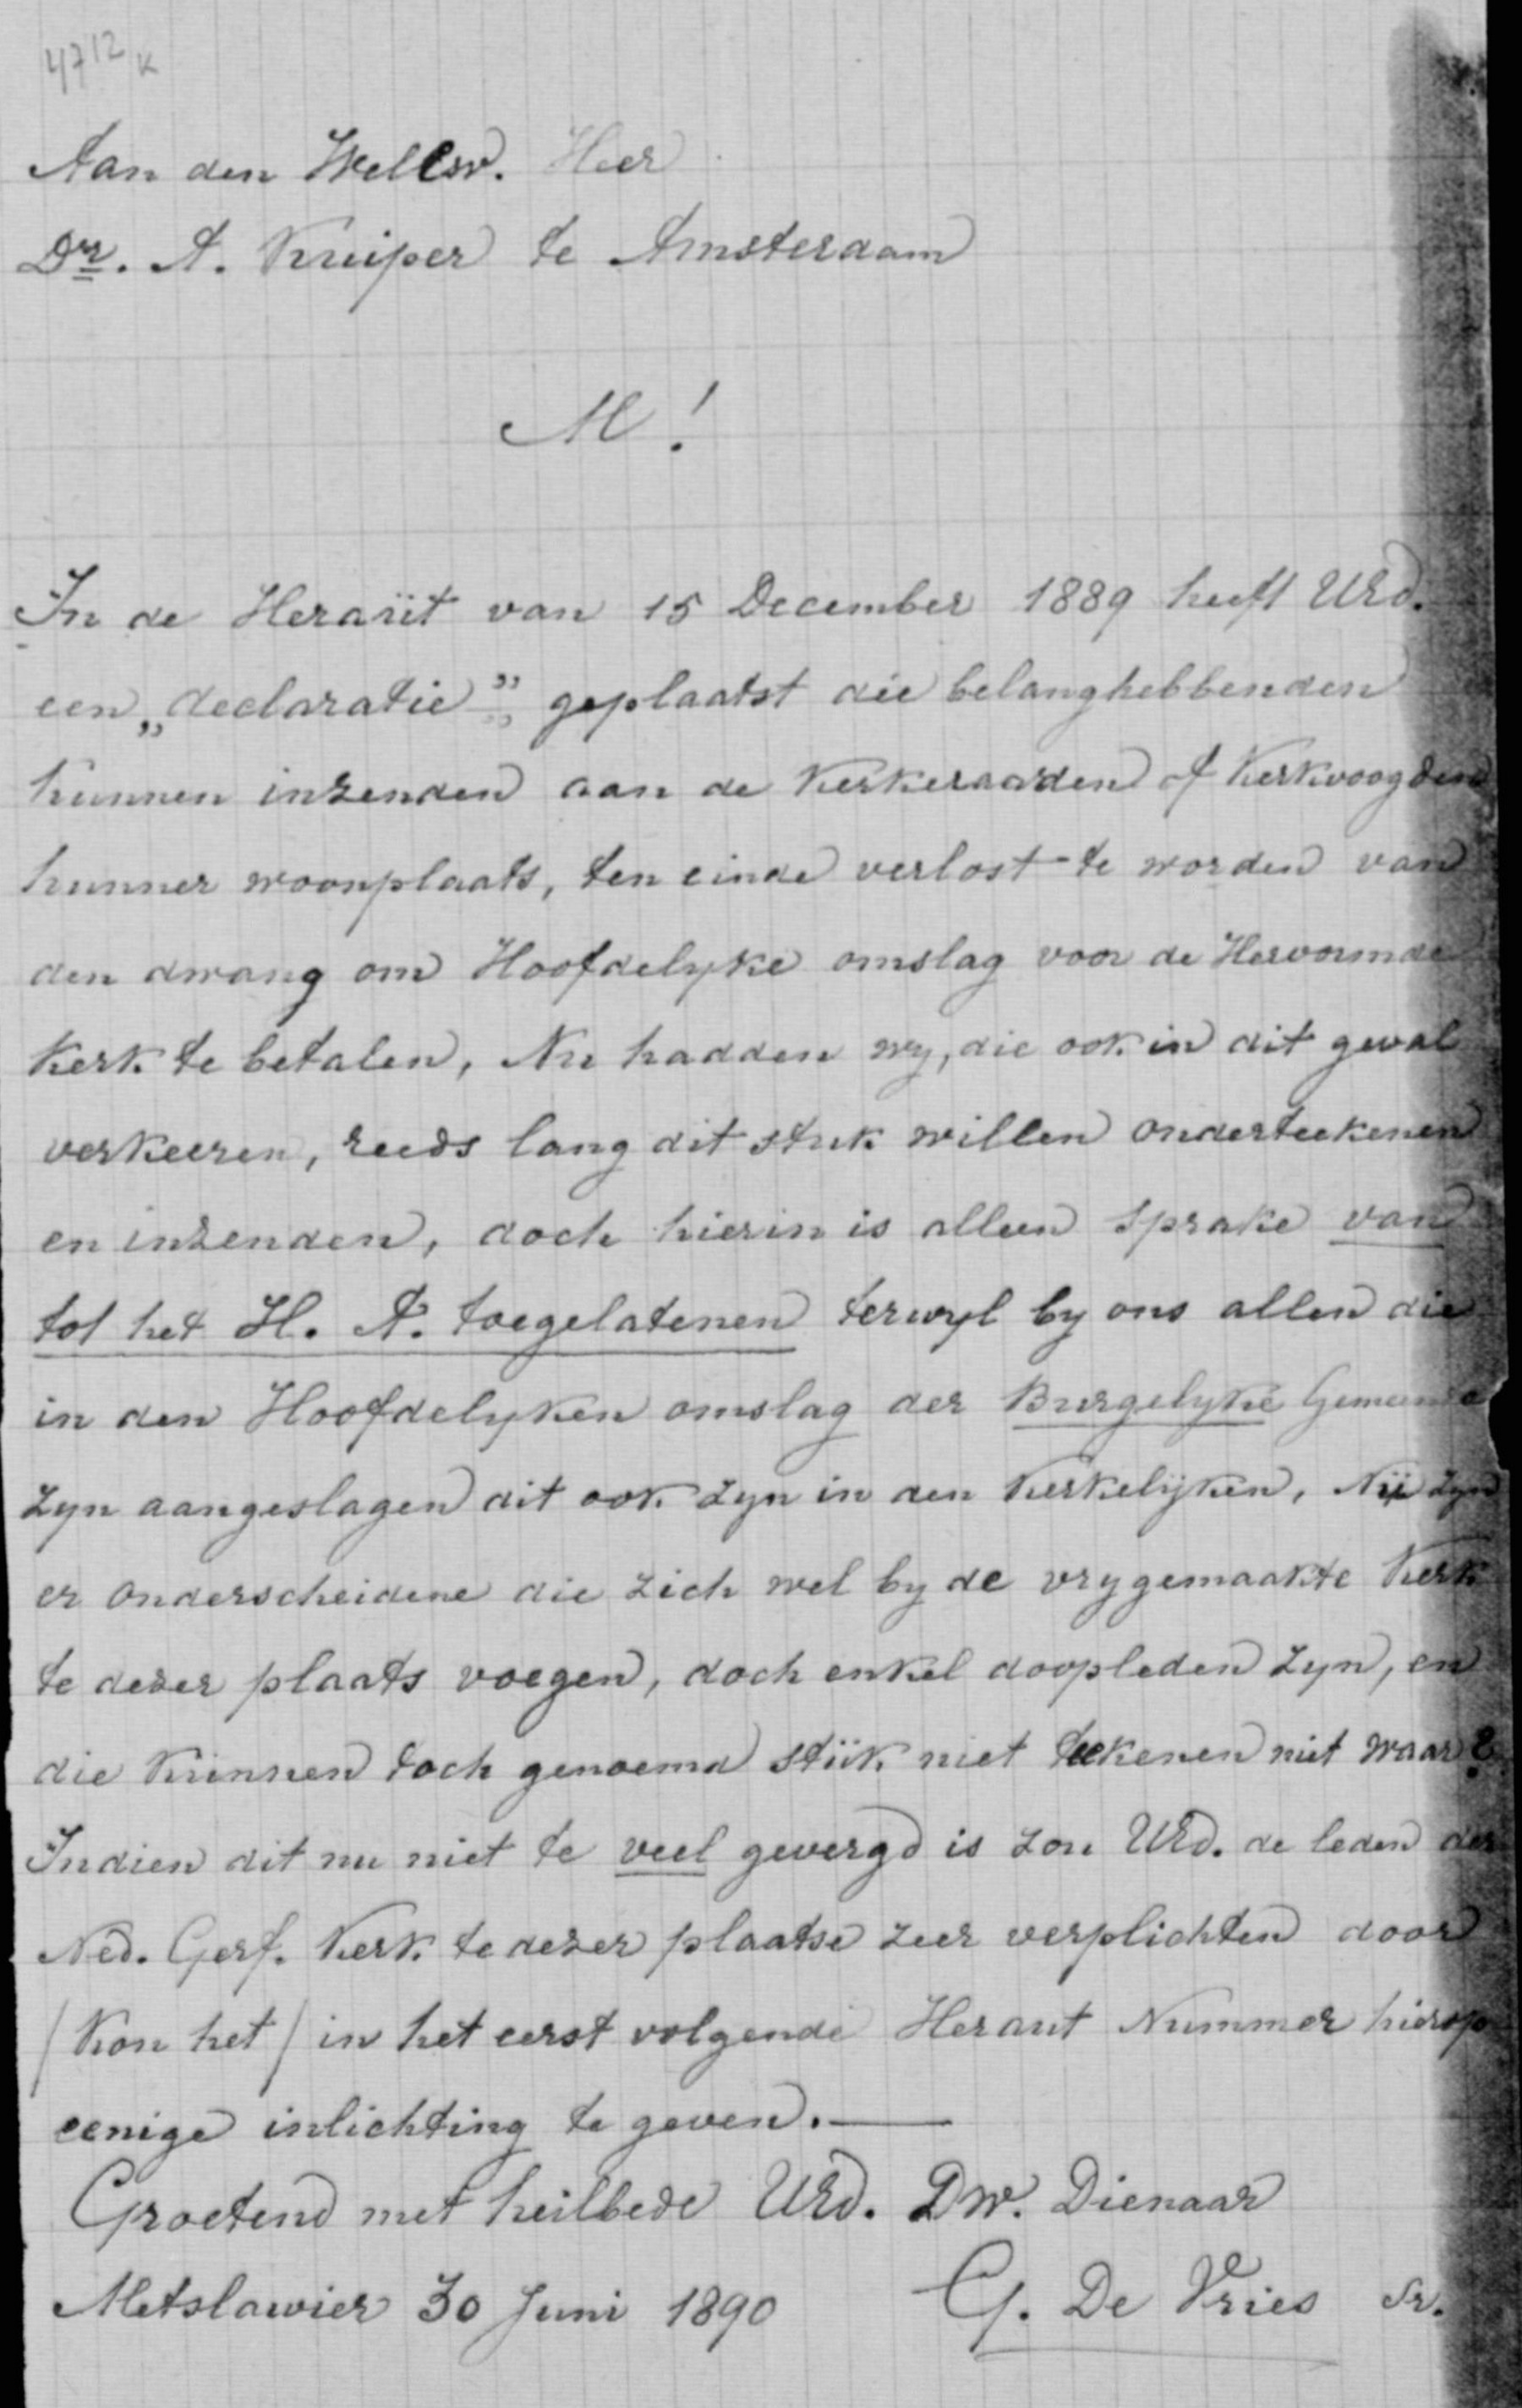 4712 K
Aan den WelEw. Heer
Dr. A. Kuiper te Amsterdam
M!
In de Heraüt van 15 December 1889 heeft UEd.
een „declaratie” geplaatst die belanghebbenden
kunnen inzenden aan de Kerkeraarden of Kerkvoogden
hunner woonplaats, ten einde verlost te worden van
den dwang om Hoofdelyke omslag voor de Hervormde
Kerk te betalen, Nu hadden wy, die ook in dit geval
verkeeren, reeds lang dit stuk willen onderteekenen
en inzenden, doch hierin is alleen sprake van
tot het H. A. toegelatenen terwyl by ons allen die
in den Hoofdelyken omslag der Burgelyke Gemeente
zyn aangeslagen dit ook zyn in den Kerkelyken, Nü zyn
er onderscheidene die zich wel by de vrygemaakte Kerk
te dezer plaats voegen, doch enkel doopleden zyn, en
die kunnen toch genoemd stük niet teekenen niet waar?
Indien dit nu niet te veel gevergd is zou UEd. de leden der
Ned. Gerf. Kerk te dezer plaatse zeer verplichten door
/Kon het/ in het eerst volgende Heraut Nummer hierop
eenige inlichting te geven.—
Groetend met heilbede UEd. Dw. Dienaar
Metslawier 30 Juni 1890 G. De Vries Sr.